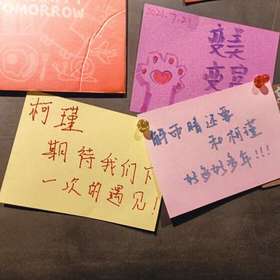 TOMORROW
2021.7.21
变美
变富
柯瑾
期待我们下
一次的遇见!
解雨晴还要
和柯瑾
好多好多年!!!